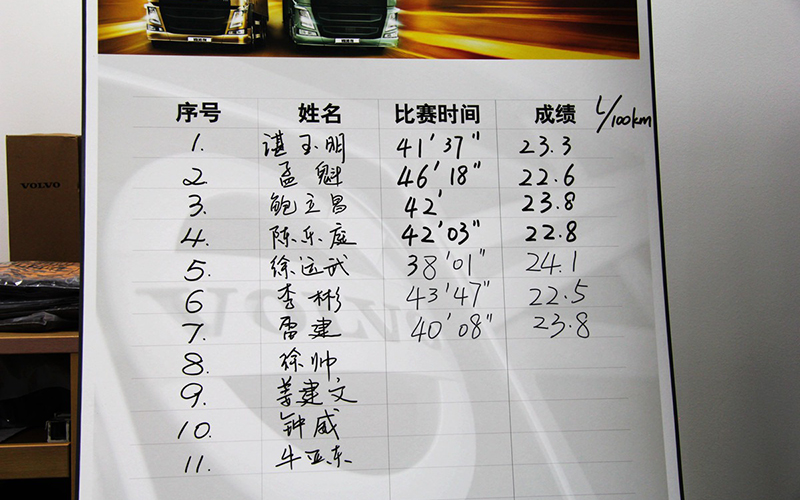 序号 姓名 比赛时间 成绩 L/100km
1. 谌玉明 41'37" 23.3
2. 孟魁 46'18" 22.6
3. 鲍立昌 42' 23.8
4. 陈乐庭 42'03" 22.8
5. 徐远武 38'01" 24.1
6 李彬 43'47" 22.5
7. 雷建 40'08" 23.8
8. 徐帅
9. 姜建文
10. 钟威
11. 牛亚东
VOLVO
VOLVO